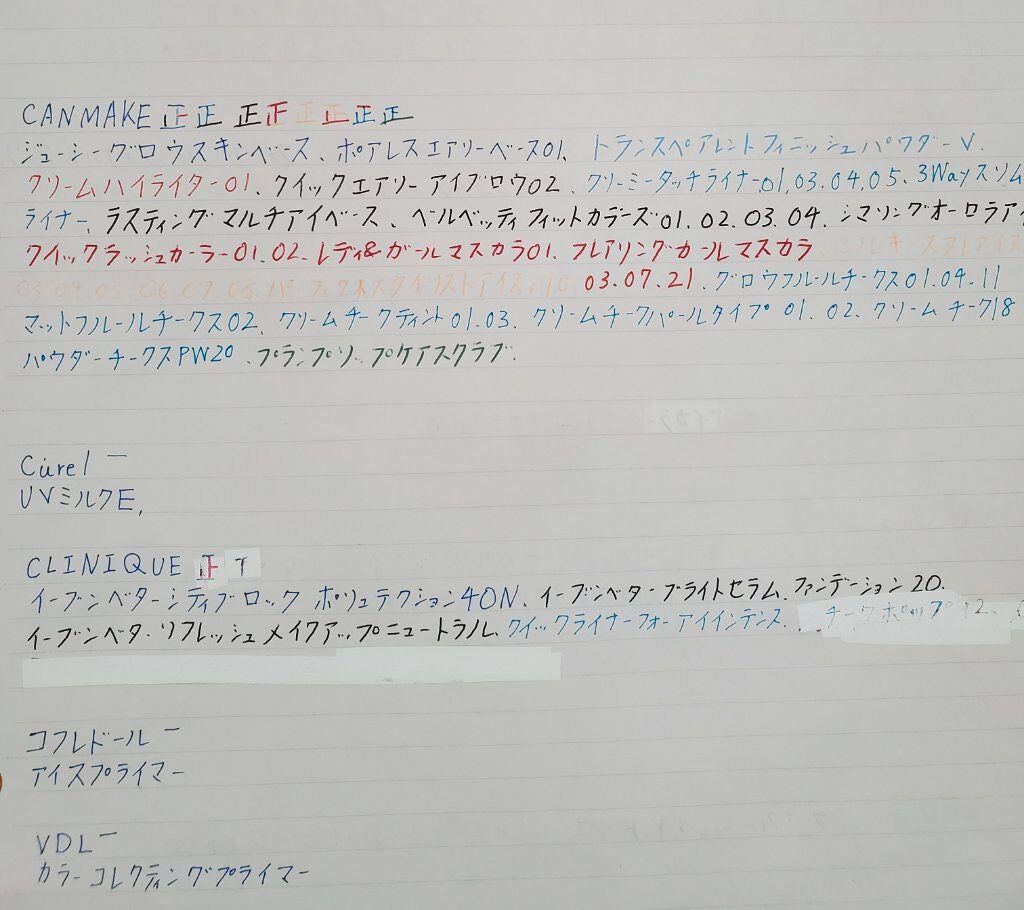 CANMAKE 正正 正正 正正正正
ジューシーグロウスキンベース、ポアレスエアリーベース01、トランスペアレントフィニッシュパウダーV.
クリームハイライター01、クイックエアリーアイブロウ02、クリーミータッチライナー01.03.04.05.3Wayスリム
ライナー、ラスティングマルチアイベース、ベルベッティフィットカラーズ01.02.03.04.シマリングオーロラア
クイックラッシュカーラー01.02.レディ&ガールマスカラ01.フレアリングカールマスカラ
03.04.05.06.07.08.パーフェクトスタイリストアイズ 03.07.21.グロウフルールチークス01.04.11
マットフルールチークス02、クリームチークティント01.03.クリームチークパールタイプ01.02.クリームチーク18
パウダーチークスPW20、プランプリップケアスクラブ.
Curel 一
UVミルクE,
CLINIQUE 正T
イーブンベターシティブロックポリュテクション40N、イーブンベターブライトセラムファンデーション20.
イーブンベターリフレッシュメイクアップニュートラル、クイックライナーフォーアイインテンス、チークポップ12、
コフレドール 一
アイスプライマー
VDL 一
カラーコレクティングプライマー